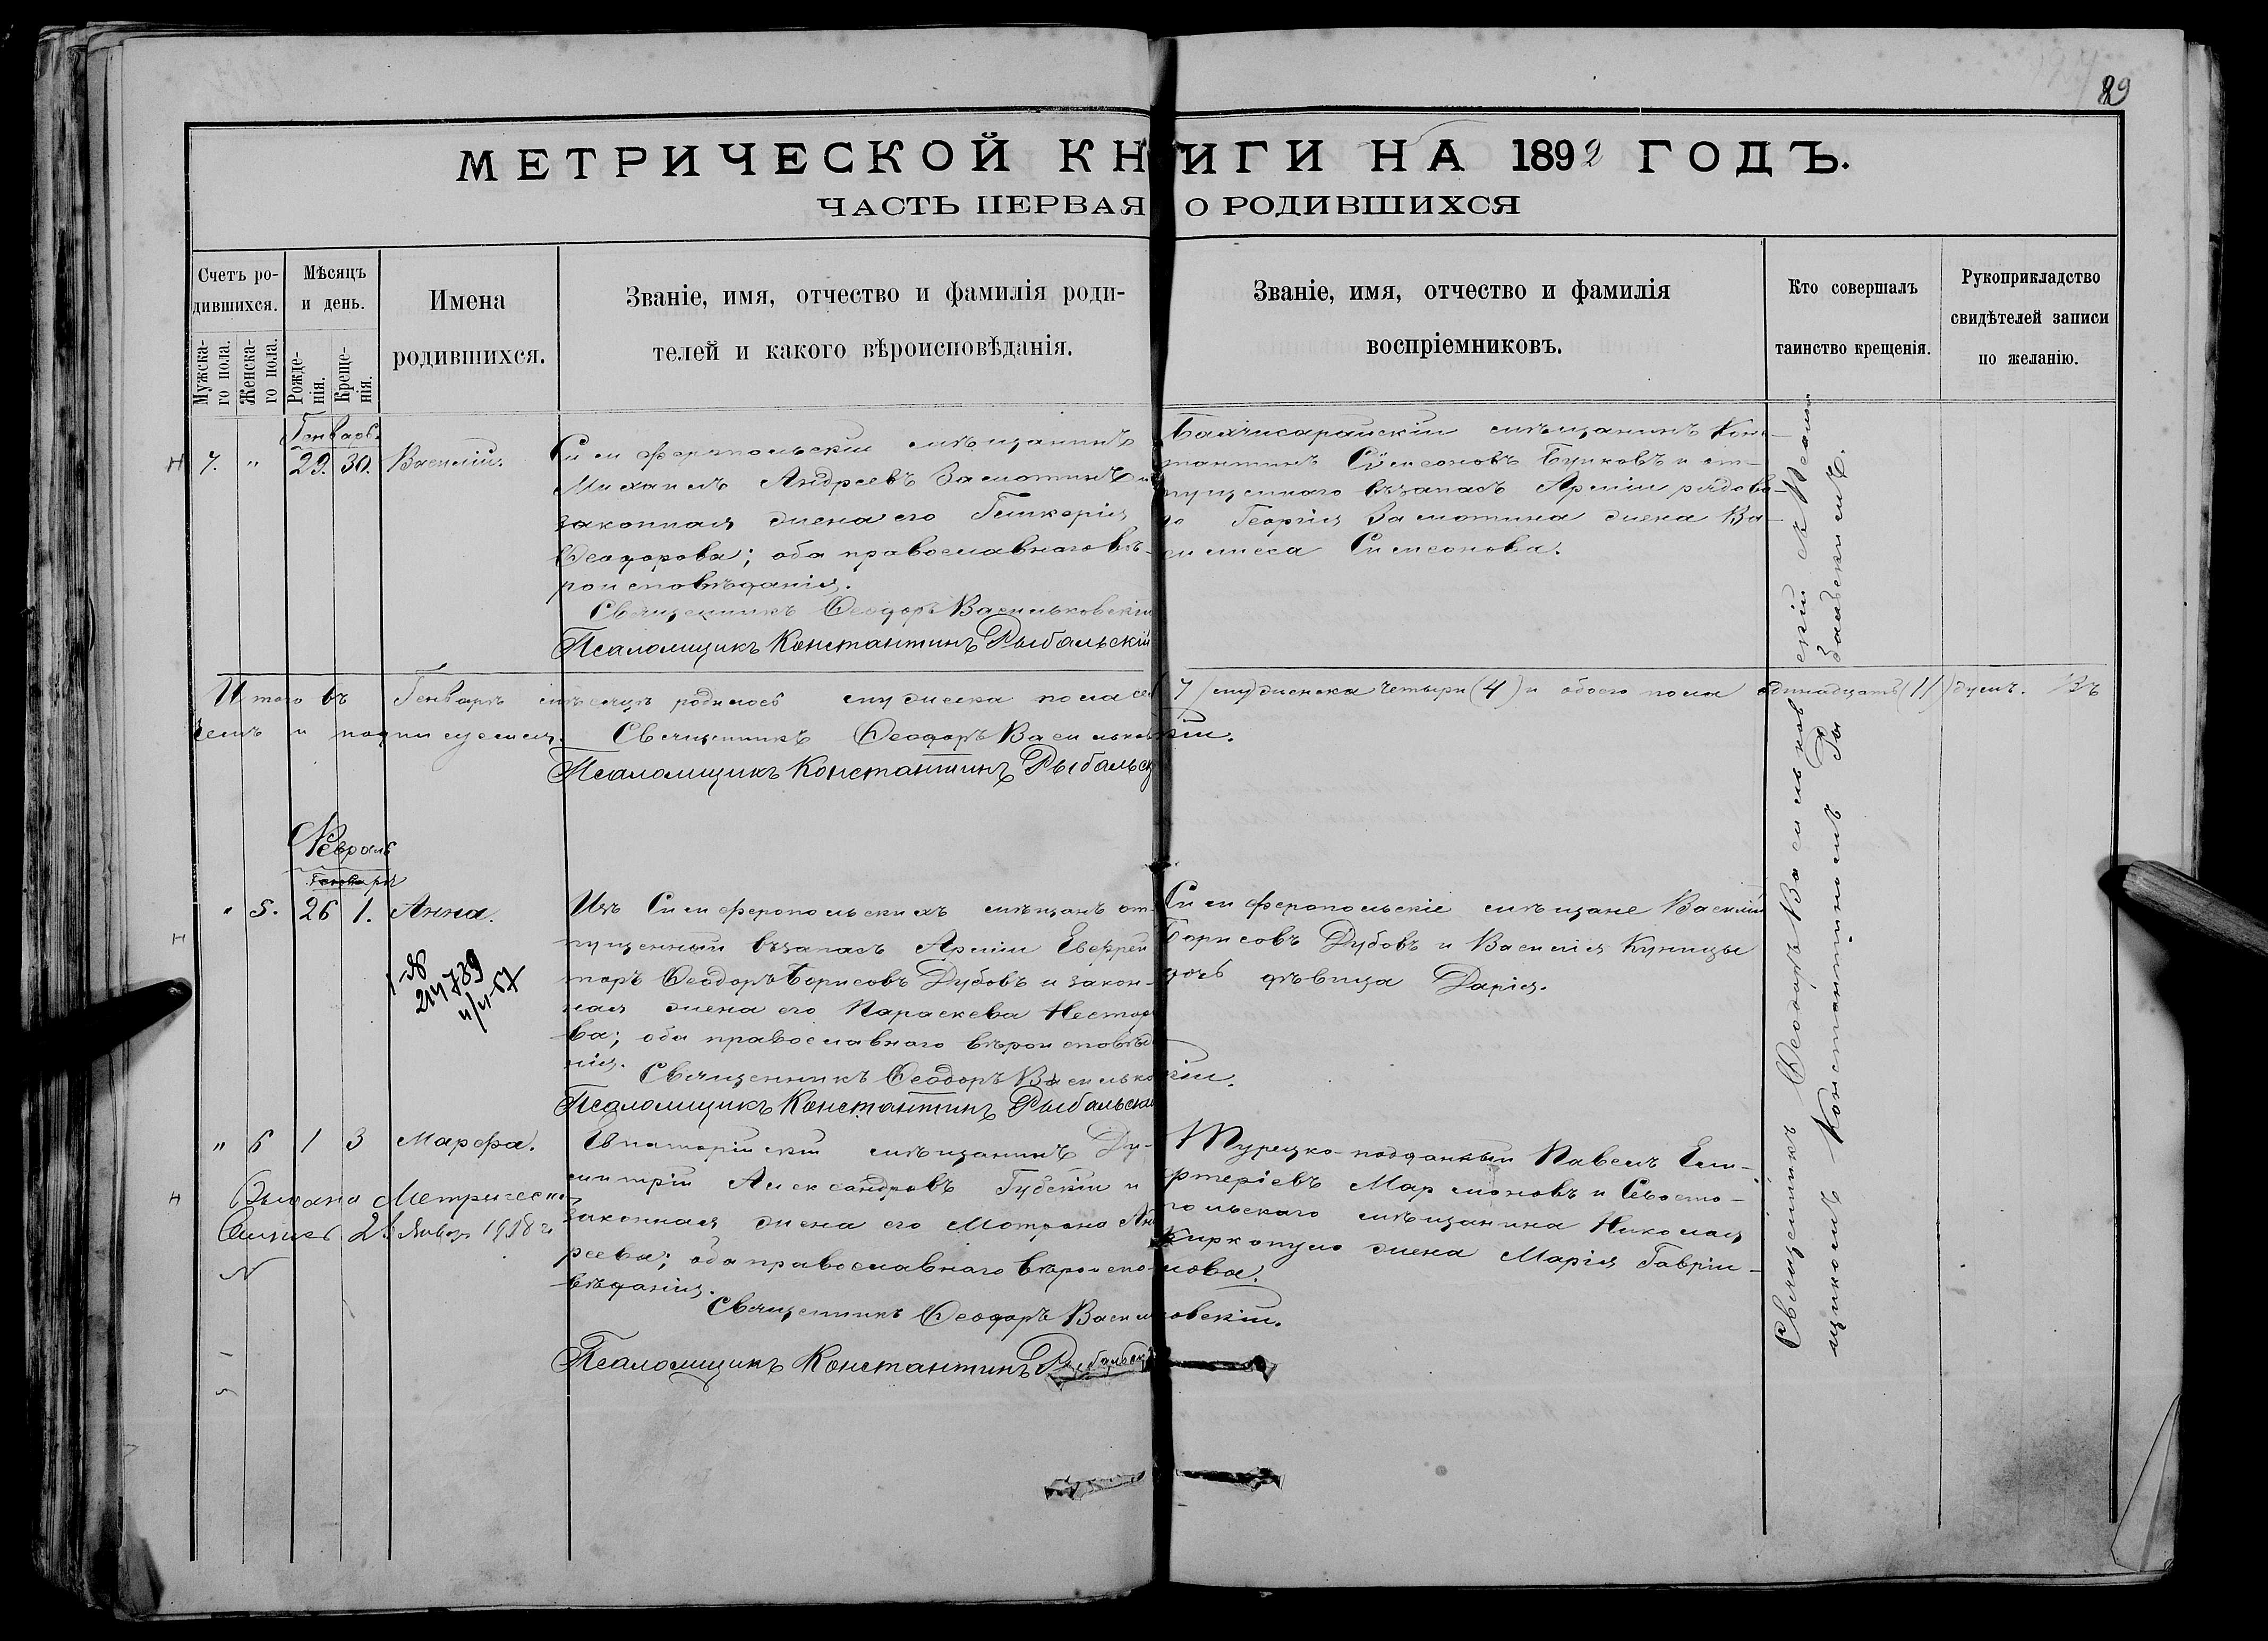 89
МЕТРИЧЕСКОЙ КНИГИ НА 1892 ГОДЪ.
ЧАСТЬ ПЕРВАЯ О РОДИВШИХСЯ
Счетъ ро-
дившихся.
Мужска-
го пола.
Женска-
го пола.
Мѣсяцъ
и день.
Рожде-
нія.
Креще-
нія.
Имена
родившихся.
Званіе, имя, отчество и фамилія роди-
телей и какого вѣроисповѣданія.
Званіе, имя, отчество и фамилія
воспріемниковъ.
Кто совершалъ
таинство крещенія.
Рукоприкладство
свидѣтелей записи
по желанію.
Генварь
н 7. " 29. 30. Василій.
Симферопольскій мѣщанинъ
Михаилъ Андреевъ Замотинъ и
законная жена его Гликерія
Ѳеодорова; оба православнаго вѣ-
роисповѣданія.
Священникъ Ѳеодоръ Васильковскій
Псаломщикъ Константинъ Рыбальскій
Бахчисарайскій мѣщанинъ Конс-
тантинъ Сѵмеоновъ Бунковъ и от-
пущеннаго въ запасъ Арміи рядово-
го Георгія Замотина жена Ва-
силиса Симеонова.
Итого въ Генварѣ мѣсяцѣ родилось мужеска пола 7 женска четыри (4) и обоего пола одинадцать (11) душъ. Въ
чемъ и подписуемся. Священникъ Ѳеодоръ Васильковскій.
Псаломщикъ Константинъ Рыбальск
Февраль
Генварь
" 5. 26 1. Анна.
н
214739
Изъ Симферопольскихъ мѣщанъ от-
пущенный въ запасъ Арміи Ефрей
торъ Ѳеодоръ Борисовъ Дубовъ и закон-
ная жена его Параскева Нестор
ва; оба православнаго вѣроисповѣд
нія.
Священникъ Ѳеодоръ Васильковскій.
Псаломщикъ Константинъ Рыбальскій
Симферопольскіе мѣщане Василій
Борисовъ Дубовъ и Василія Куницы
дочь дѣвица Дарія.
" 6 1 3 Марѳа.
н Выдана Метрическ
Выпись 2 Январ 1918 г.
Евпаторійскій мѣщанинъ Ди-
митрій Александровъ Губскій и
законная жена его Мотрона Ан
реева; оба православнаго вѣроиспо-
вѣданія.
Священникъ Ѳеодоръ Васильковскій.
Псаломщикъ Константинъ Рыбальскій
Турецко-подданный Павелъ Еле-
ѳтеріевъ Мармоновъ и Севасто-
польскаго мѣщанина Николая
Киркопуло жена Марія Гаврі-
лова.
Священникъ Ѳеодоръ Васильковскій съ Псалом
щикомъ Константиномъ Рыбальскимъ.